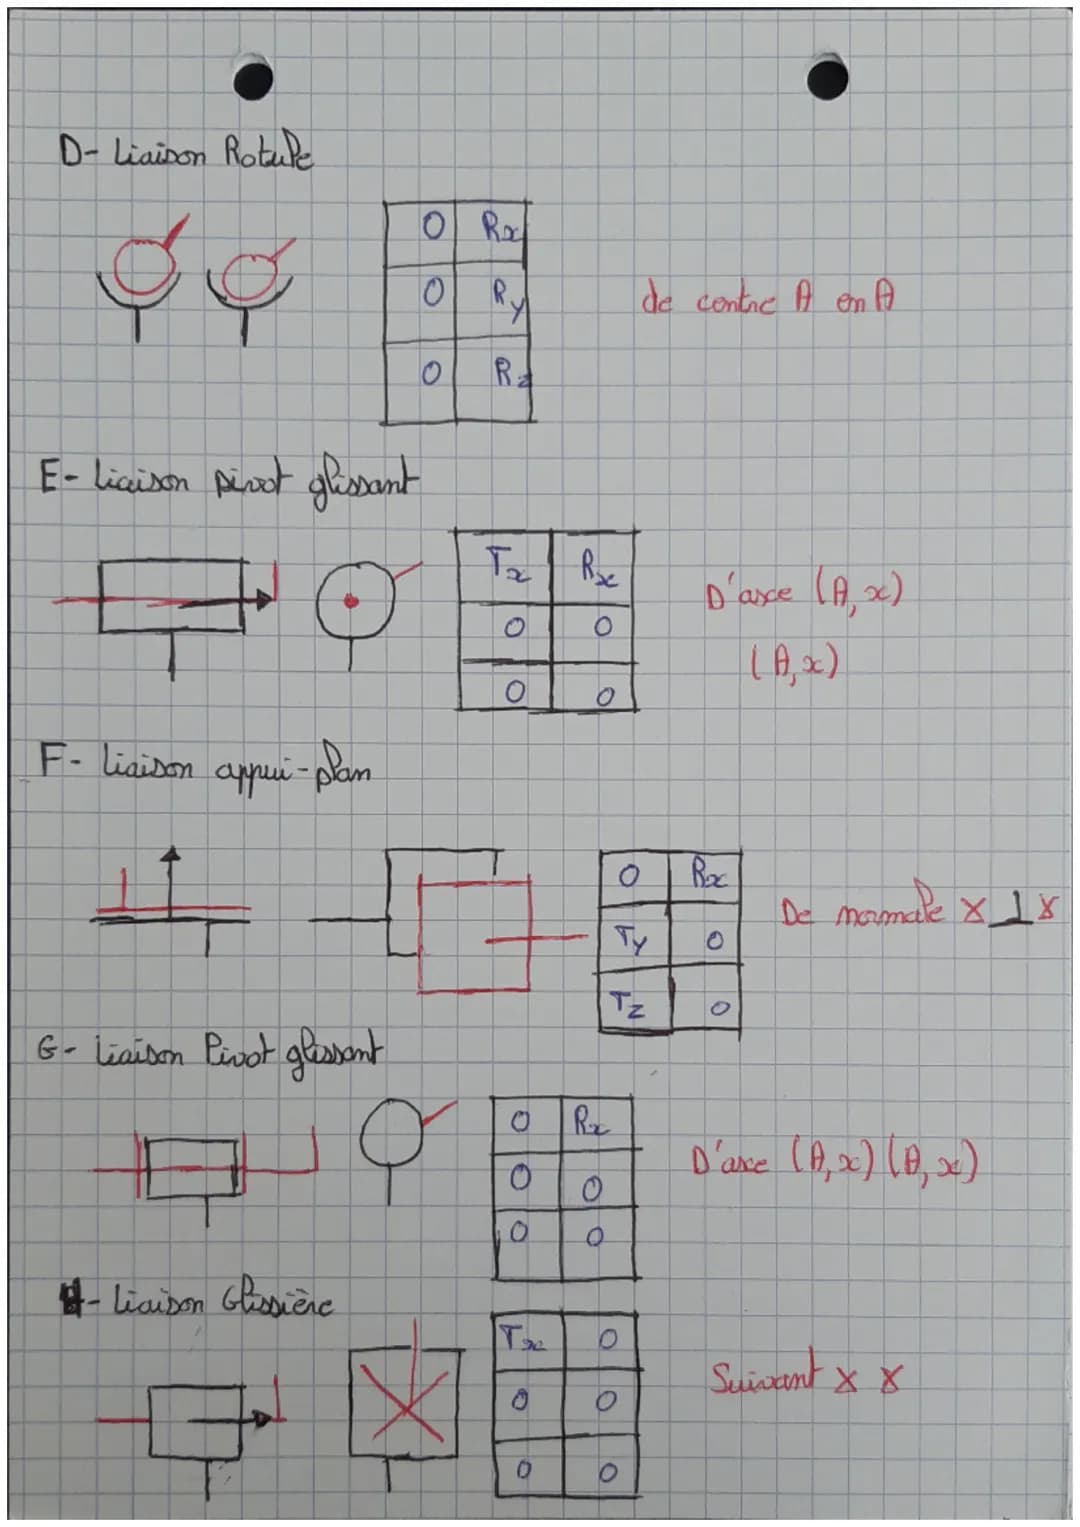 D- Liaison Rotule
0 Rx
0 Ry
0 Rz
de contre A en A
E- Liaison pivot glissant
Tx Rx
0 0
0 0
D'axe (A,x)
(A,x)
F- Liaison appui-plan
0 Rx
Ty 0
Tz 0
De normale x ⊥ x
G- Liaison Pivot glissant
0 Rx
0 0
0 0
D'axe (A,x) (A,x)
H- Liaison Glissière
Tx 0
0 0
0 0
Suivant x x